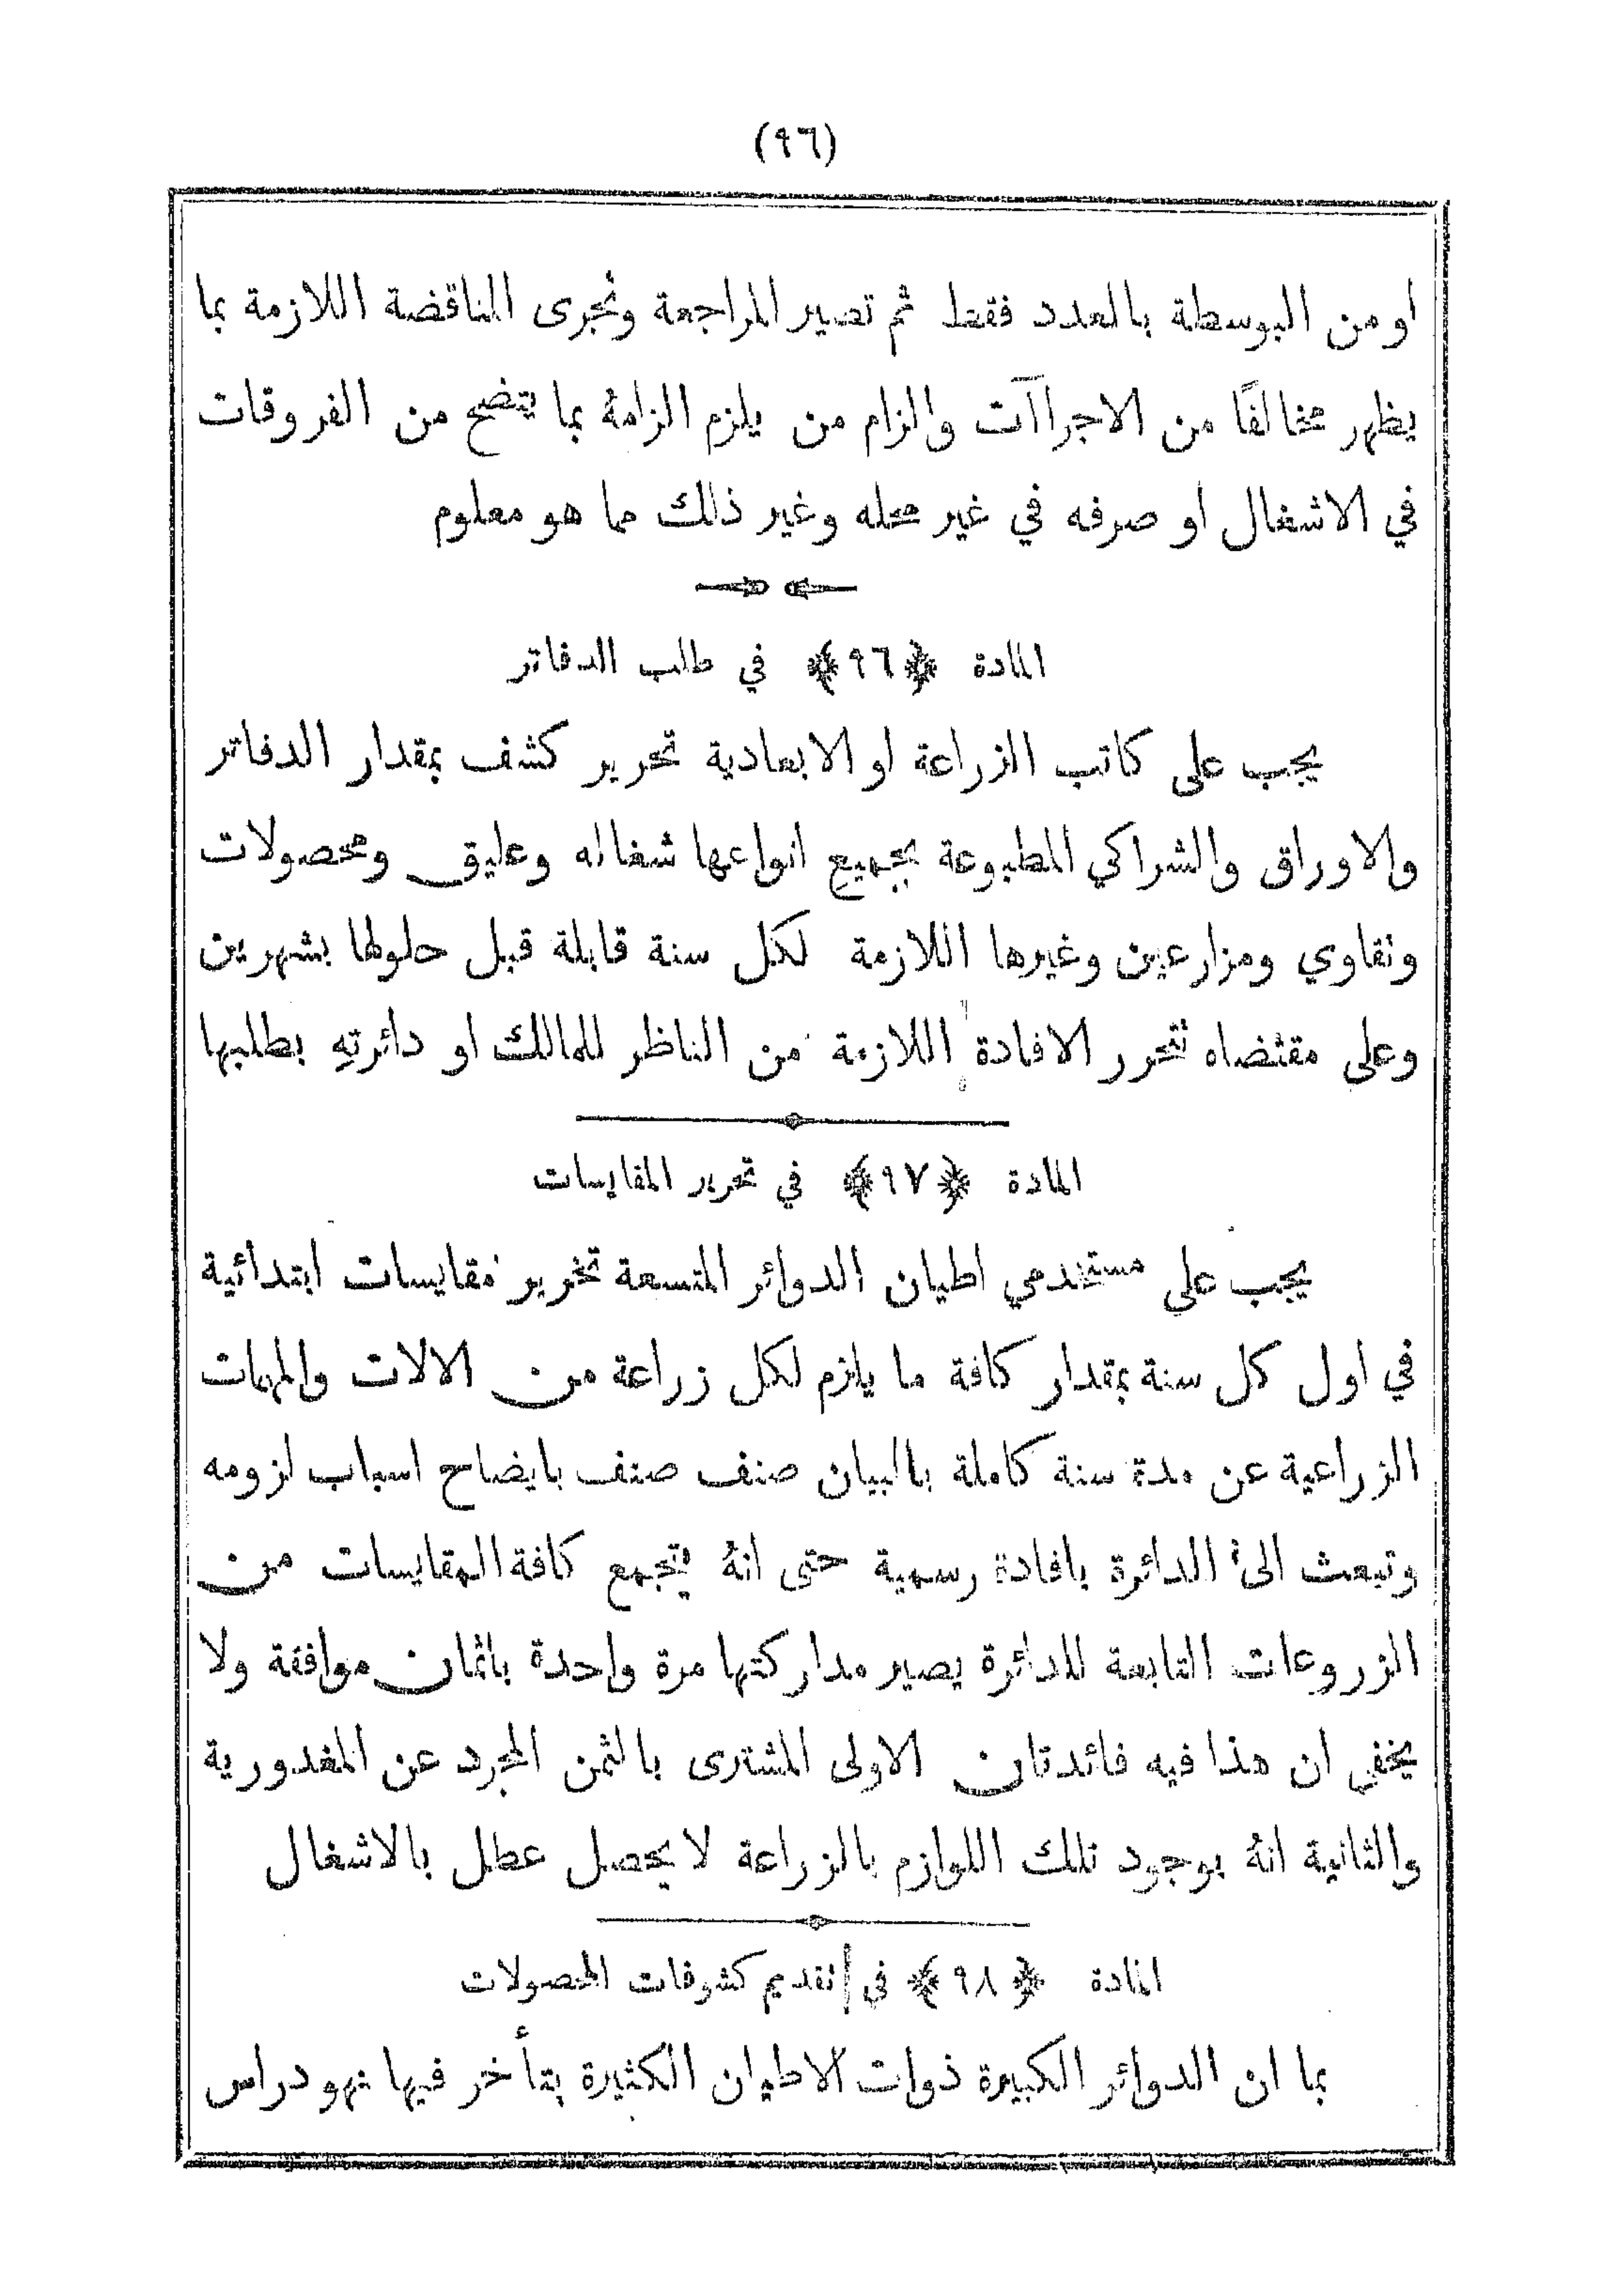 (٩٦)
او من البوسطة بالعدد فقط ثم تصير المراجعة وتجرى المناقضة اللازمة بما
يظهر مخالفًا من الاجراآت والزام من يلزم الزامهُ بما يتضح من الفروقات
في الاشغال او صرفه في غير محله وغير ذلك مما هو معلوم
المادة ﴿٩٦﴾ في طلب الدفاتر
يجب على كاتب الزراعة او الابعادية تحرير كشف بمقدار الدفاتر
والاوراق والشراكي المطبوعة بجميع انواعها شغاله وعليق ومحصولات
وتقاوي ومزارعين وغيرها اللازمة لكل سنة قابلة قبل حلولها بشهرين
وعلى مقتضاه تتحرر الافادة اللازمة من الناظر للمالك او دائرتهِ بطلبها
المادة ﴿٩٧﴾ في تحرير المقايسات
يجب على مستخدمي اطيان الدوائر المتسعة تحرير مقايسات ابتدائية
في اول كل سنة بمقدار كافة ما يلزم لكل زراعة من الالات والمهمات
الزراعية عن مدة سنة كاملة بالبيان صنف صنف بايضاح اسباب لزومه
وتبعث الى الدائرة بافادة رسمية حتى انهُ يتجمع كافة المقايسات من
الزروعات التابعة للدائرة يصير مداركتها مرة واحدة باثمان موافقة ولا
يخفى ان هذا فيه فائدتان الاولى المشترى بالثمن المجرد عن المغدورية
والثانية انهُ بوجود تلك اللوازم بالزراعة لا يحصل عطل بالاشغال
المادة ﴿٩٨﴾ في تقديم كشوفات المحصولات
بما ان الدوائر الكبيرة ذوات الاطيان الكثيرة يتأخر فيها نهو دراس